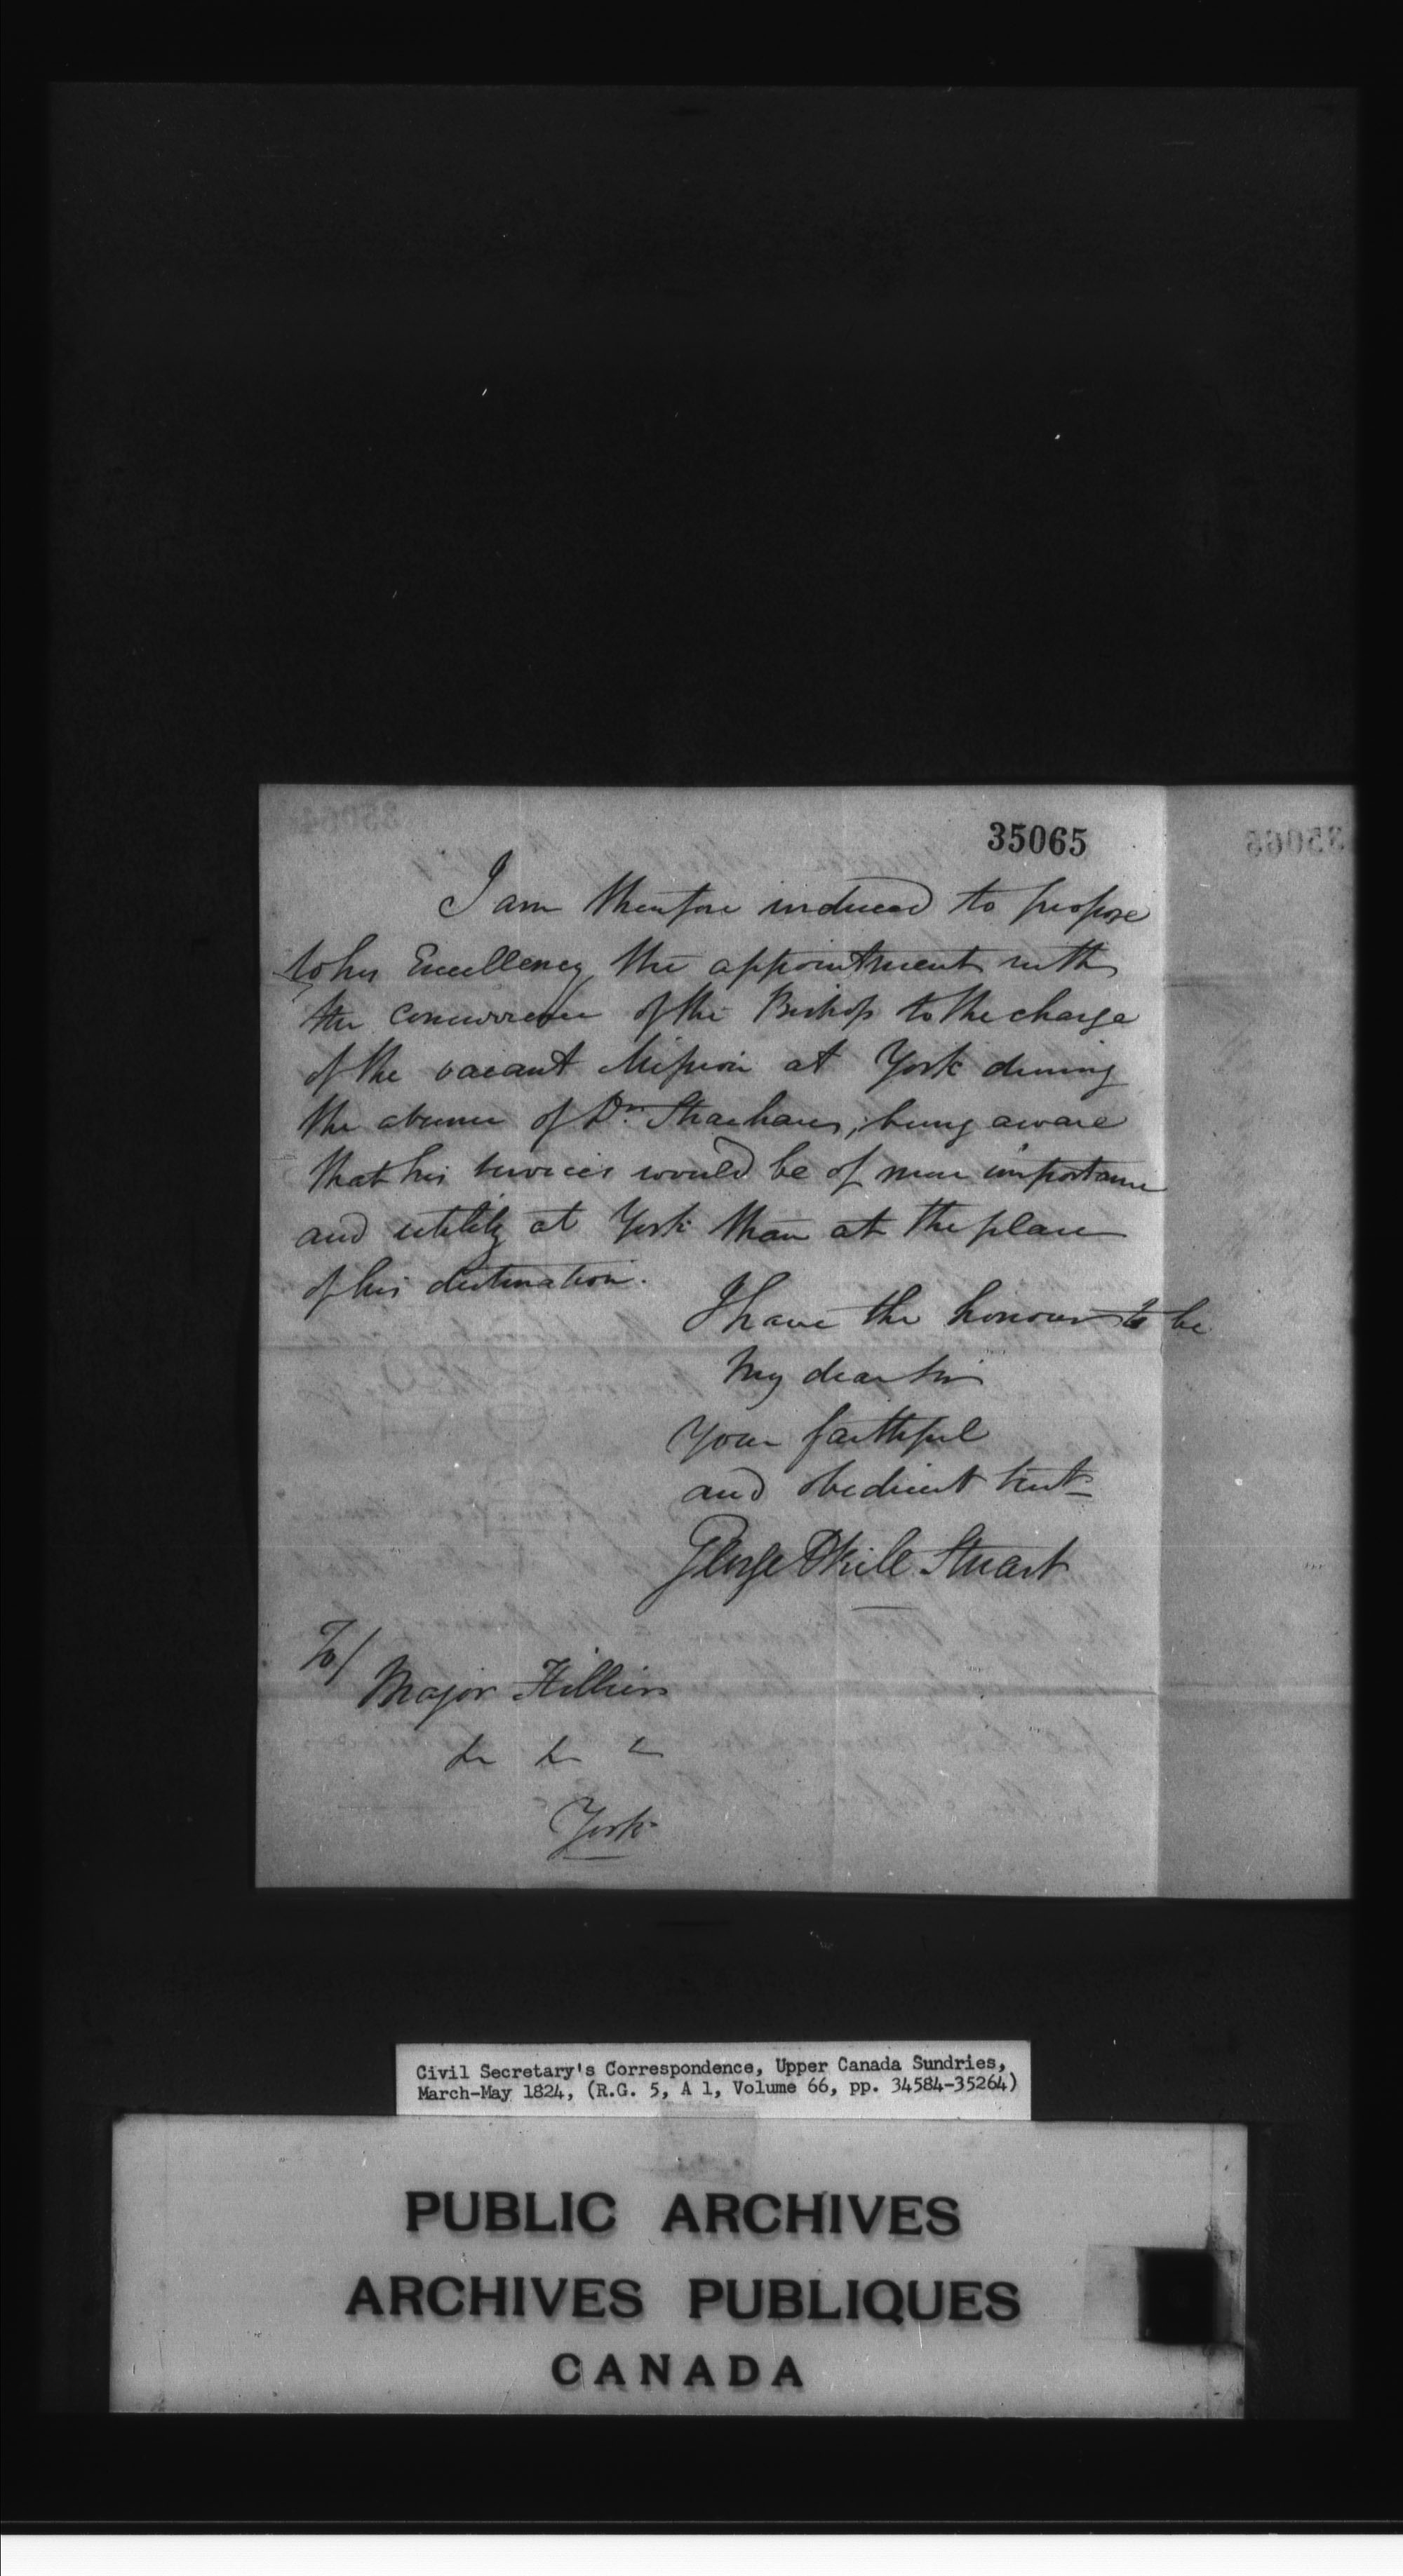 35065
I am therefore induced to propose
to his Excellency the appointment with
the concurrence of the Bishop to the charge
of the vacant Mission at York during
the absence of Dr. Strachan, being aware
that his services would be of more importance
and utility at York than at the place
of his destination.
I have the honour to be
My dear Sir
Your faithful
and obedient Sert
George Okill Stuart
To/
Major Hillier
&c &c &c
York
Civil Secretary's Correspondence, Upper Canada Sundries,
March-May 1824, (R.G. 5, A 1, Volume 66, pp. 34584-35264)
PUBLIC ARCHIVES
ARCHIVES PUBLIQUES
CANADA